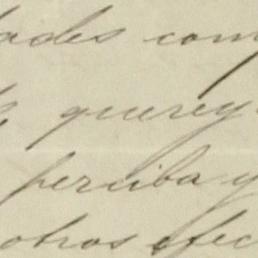 ades com
querey
perciba y
otros efec